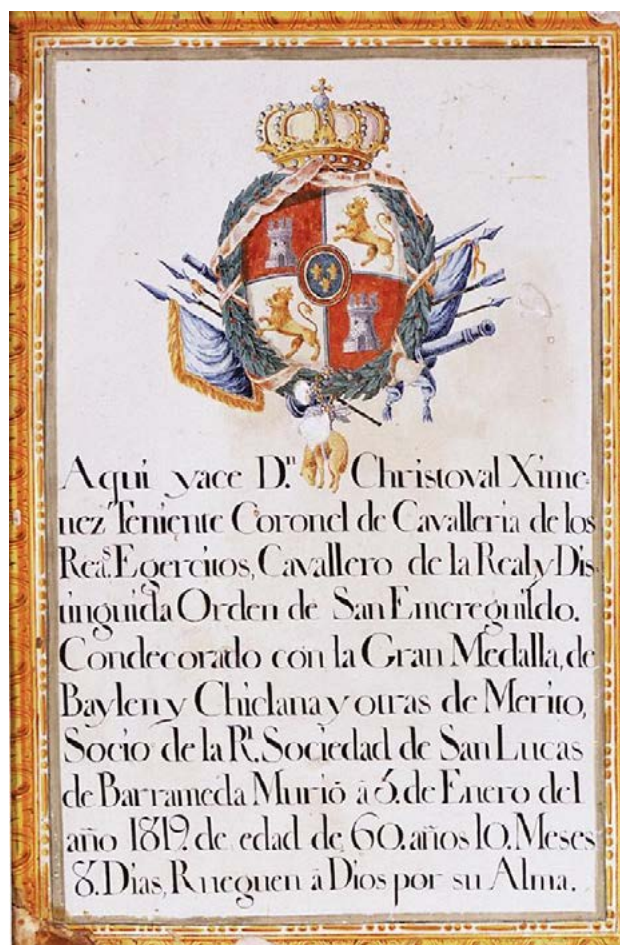 Aqui yace D.n Christoval Xime-
nez Teniente Coronel de Cavalleria de los
Rea.s Egercitos, Cavallero de la Real y Dis
tinguida Orden de San Emereguildo.
Condecorado con la Gran Medalla, de
Baylen y Chiclana y otras de Merito,
Socio de la R.l Sociedad de San Lucas
de Barrameda Murió á 6. de Enero del
año 1819. de edad de 60. años 10. Meses
8. Dias, Rueguen â Dios por su Alma.